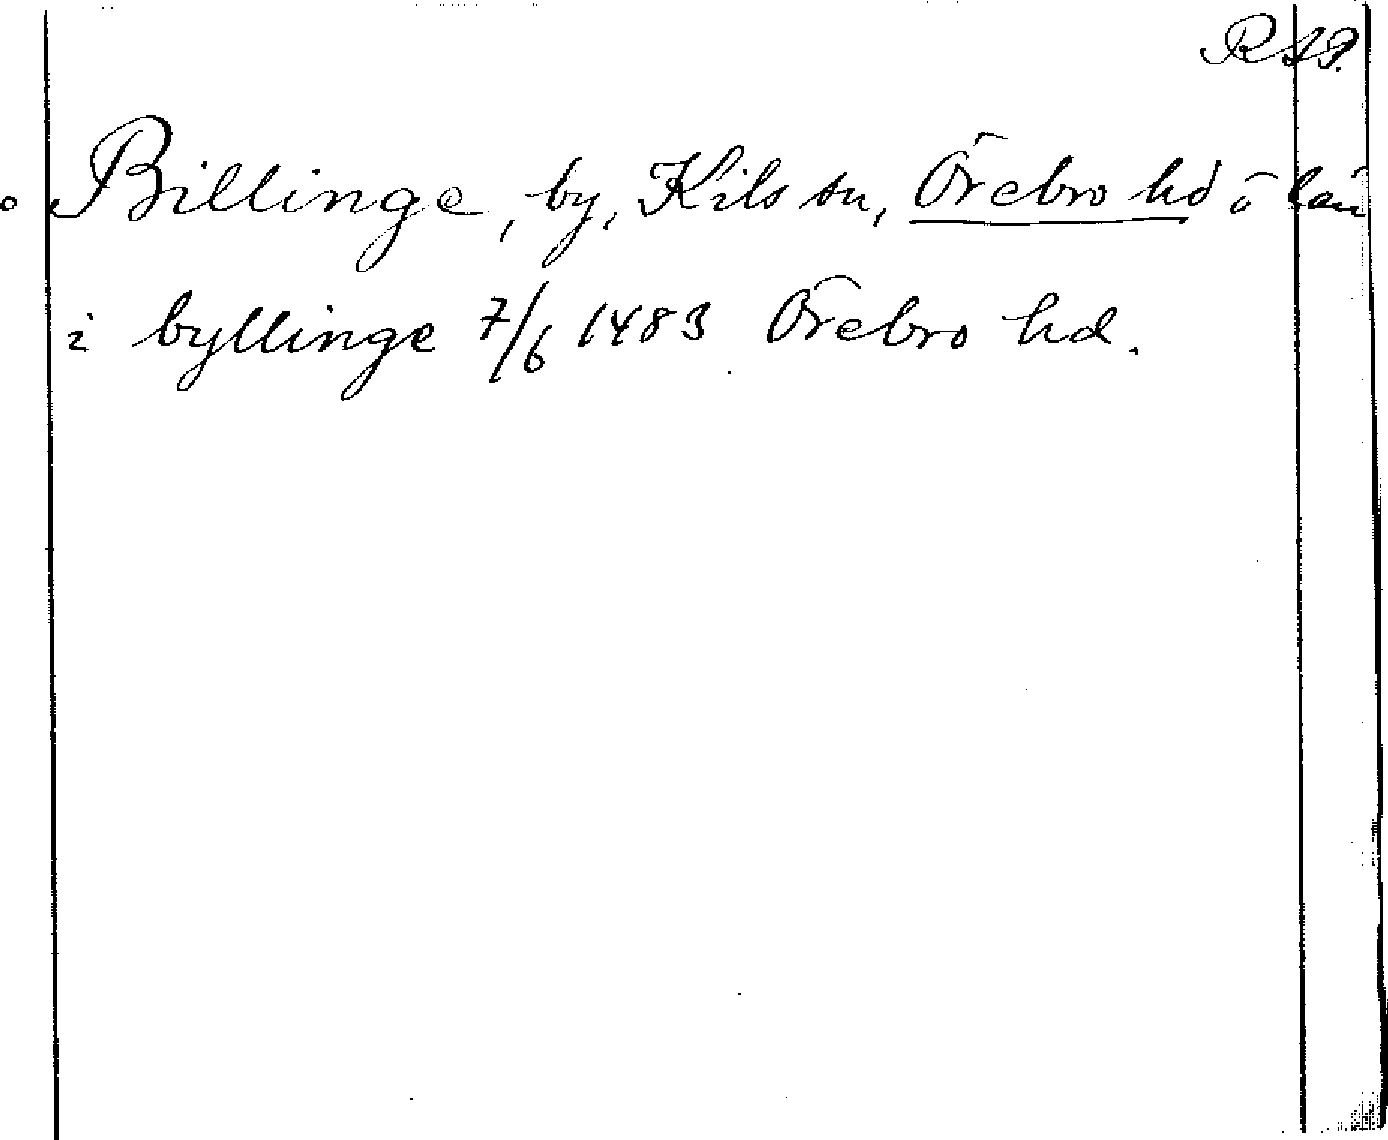 R A P.
Billinge, by, Kils sn, Örebro hd o län
i byllinge 7/6 1483 Örebro hd.